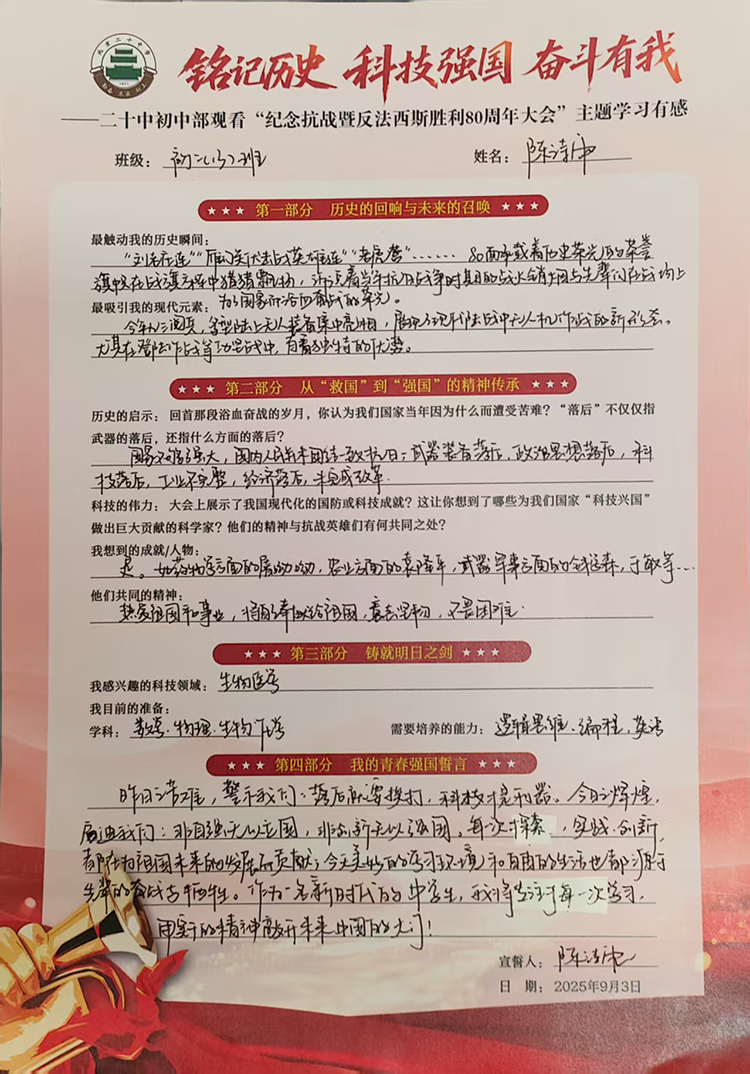 铭记历史 科技强国 奋斗有我
——二十中初中部观看“纪念抗战暨反法西斯胜利80周年大会”主题学习有感
班级：
姓名：陈诗
★★★ 第一部分 历史的回响与未来的召唤 ★★★
最触动我的历史瞬间：
“刘老庄连”“雁门关伏击战英雄连”“老虎营”…… 80面承载着历史荣光的荣誉
旗帜在战旗方阵中猎猎飘扬，着当年抗日战争时期的战火硝烟与先辈们在战场上
为了国家而浴血奋战的荣光。
最吸引我的现代元素：
今年九三阅兵，多型陆上无人装备集中亮相，展现了现代陆战中无人机作战的新形态。
尤其在登陆作战等场景中，有着独特的优势。
★★★ 第二部分 从“救国”到“强国”的精神传承 ★★★
历史的启示：回首那段浴血奋战的岁月，你认为我们国家当年因为什么而遭受苦难？“落后”不仅仅指
武器的落后，还指什么方面的落后？
国家不够强大，国内人民未团结一致抗日；武器装备落后，政治思想落后，科
技落后，工业不完整，经济落后，未完成改革.
科技的伟力：大会上展示了我国现代化的国防或科技成就？这让你想到了哪些为我们国家“科技兴国”
做出巨大贡献的科学家？他们的精神与抗战英雄们有何共同之处？
我想到的成就/人物：
是。如药物学方面的屠呦呦，农业方面的袁隆平，武器军事方面的钱学森，于敏等…
他们共同的精神：
热爱祖国和事业，将自己奉献给祖国，意志坚韧，不畏困难.
★★★ 第三部分 铸就明日之剑 ★★★
我感兴趣的科技领域：生物医学
我目前的准备：
学科：数学.物理.生物.化学
需要培养的能力：逻辑思维.编程.英语
★★★ 第四部分 我的青春强国誓言 ★★★
昨日之苦难，警示我们：落后就要挨打，科技才是利器。今日之辉煌，
启迪我们：非自强无以立国，非创新无以强国，每一次探索，实践.创新，
都在为祖国未来的发展而贡献；今天美好的学习环境和自由的生活也都源于
先辈的奋战与牺牲。作为一名新时代的中学生，我将专注于每一次学习.
用新的精神敲开未来中国的大门！
宣誓人：陈诗
日 期：2025年9月3日